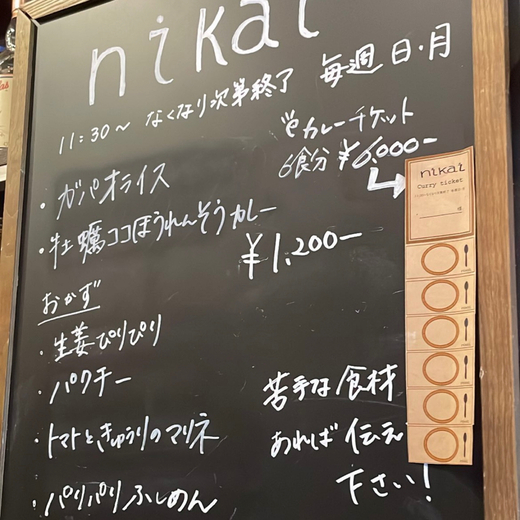 nikai
11:30〜 なくなり次第終了 毎週 日・月
カレーチケット
6食分 ¥6,000-
・ガパオライス
・牡蠣ココほうれんそうカレー
¥1,200-
nikai
Curry ticket
様
おかず
・生姜ぴりぴり
・パクチー
・トマトときゅうりのマリネ
・パリパリふしめん
苦手な食材
あれば伝え
下さい!